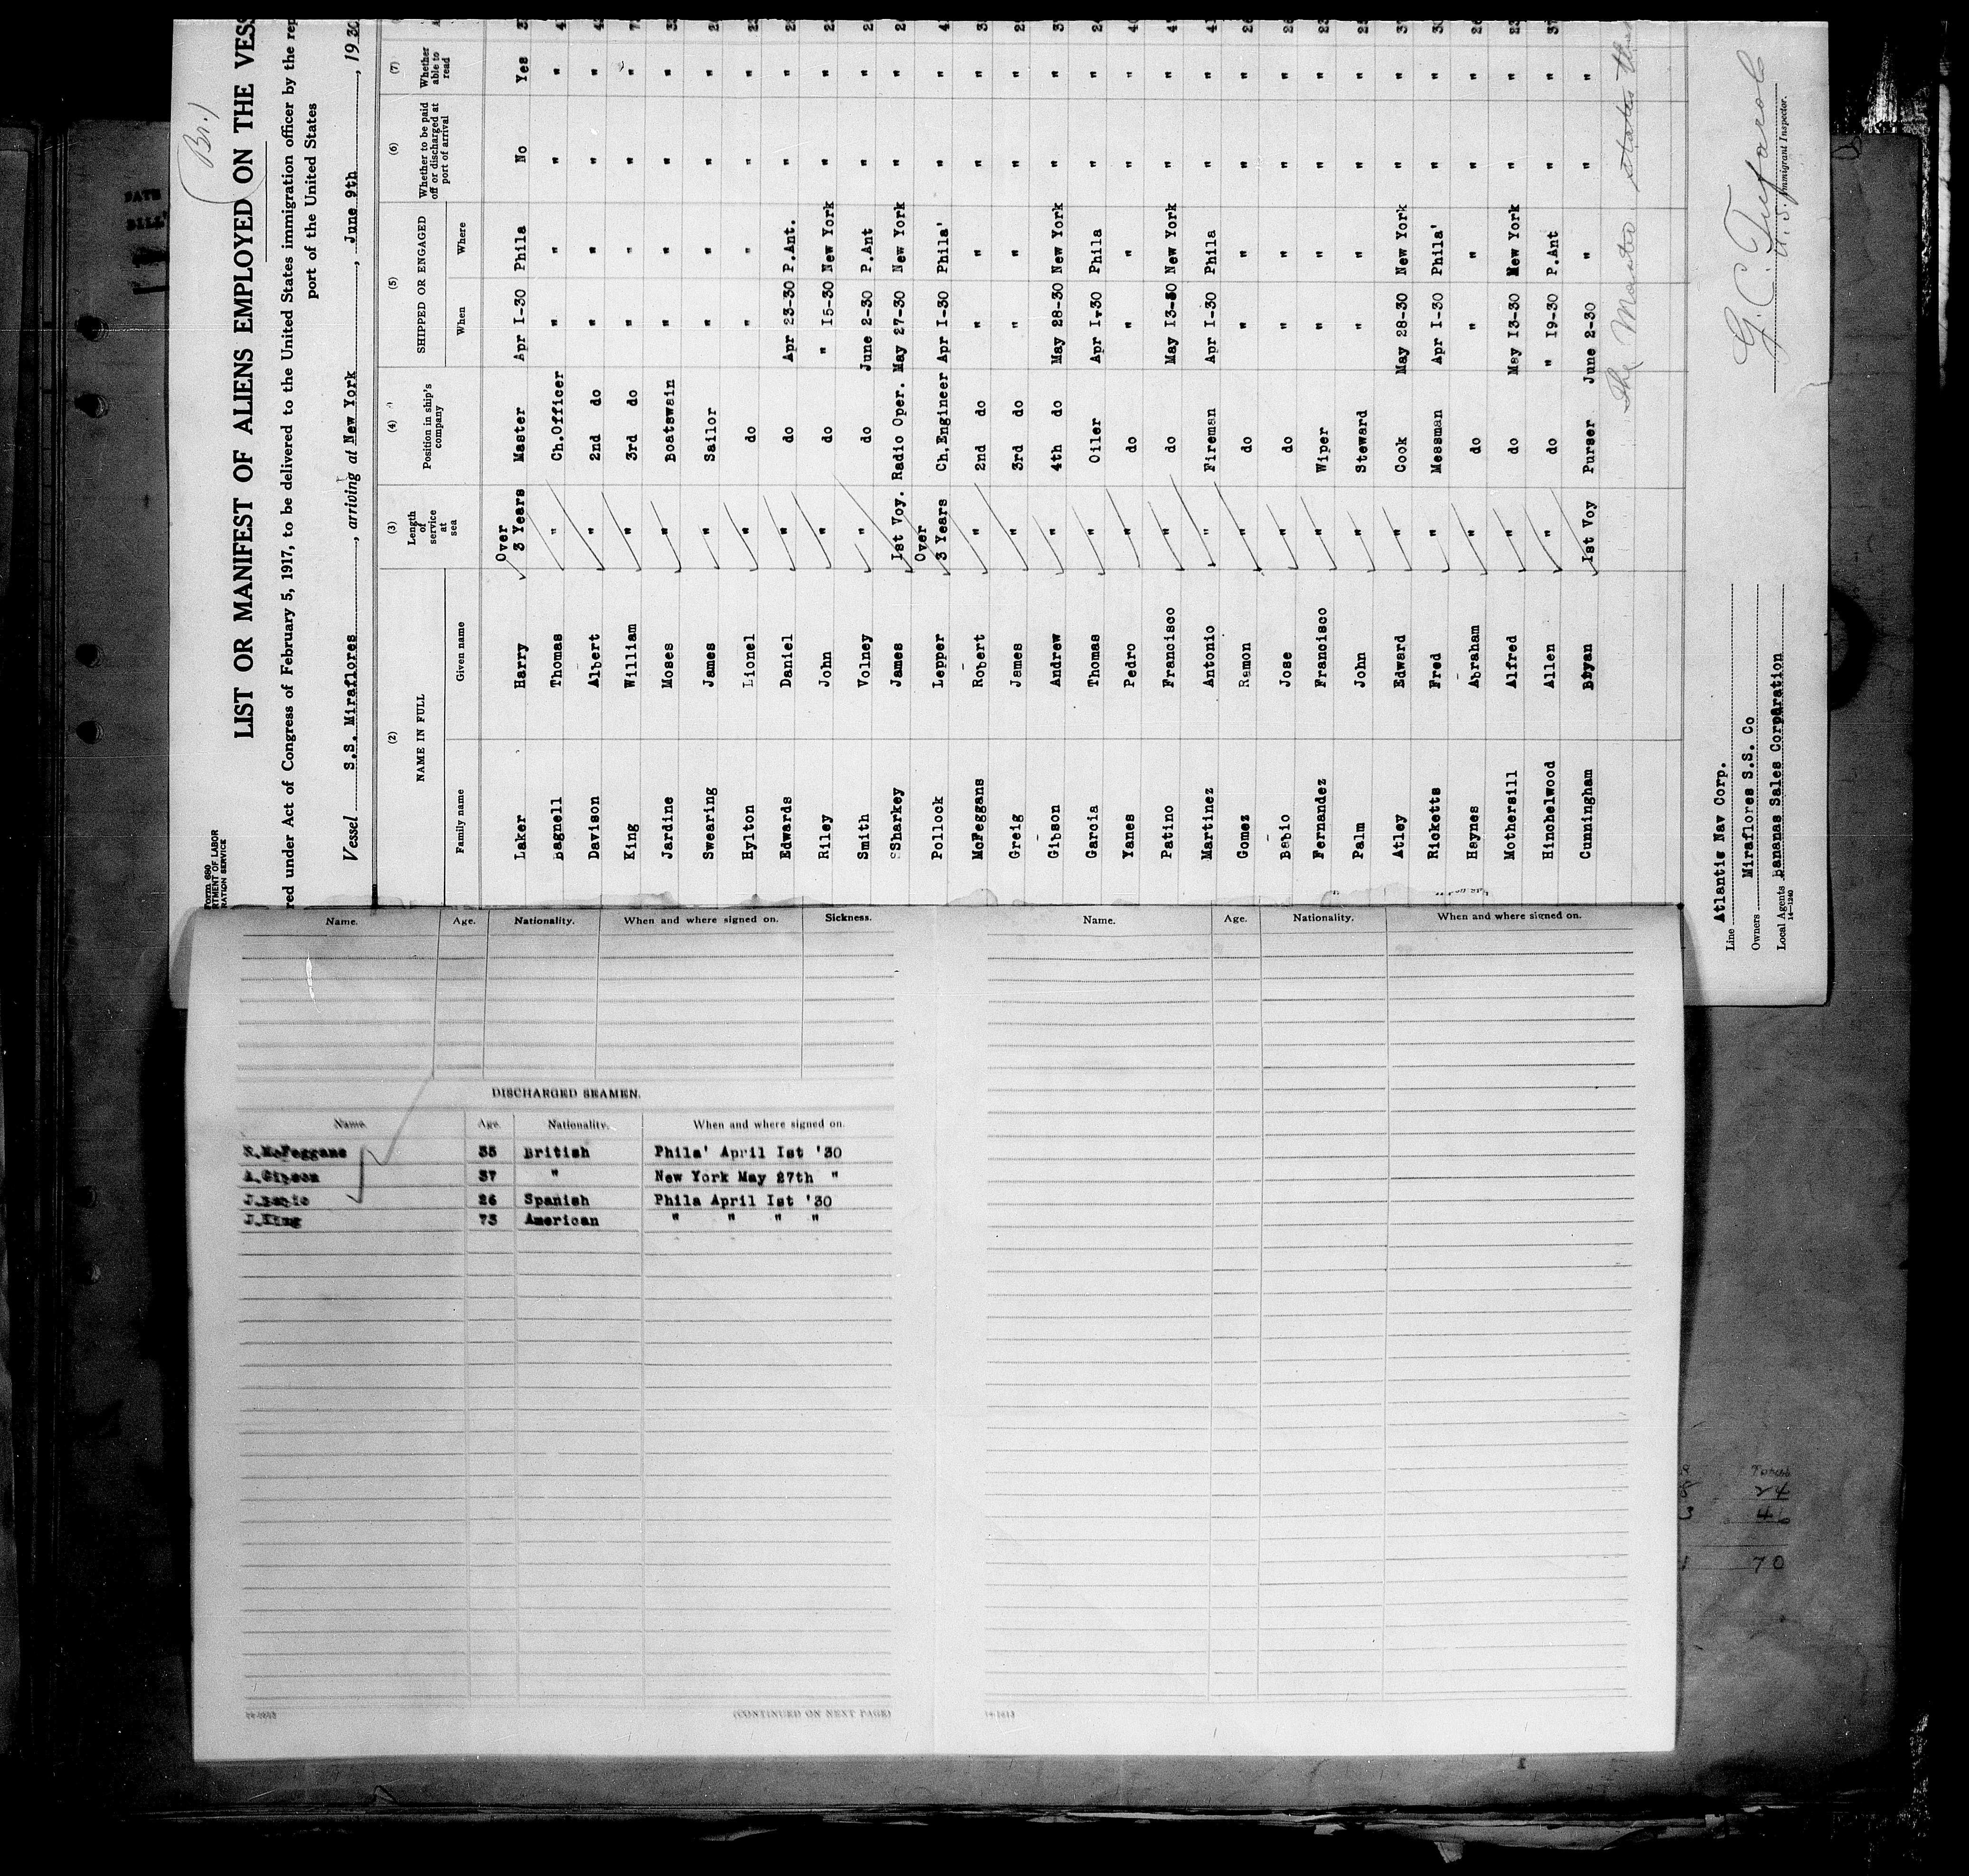 (Br.)
Form 680
RTMENT OF LABOR
RATION SERVICE
LIST OR MANIFEST OF ALIENS EMPLOYED ON THE VESS
red under Act of Congress of February 5, 1917, to be delivered to the United States immigration officer by the rep
port of the United States
Vessel S.S. Miraflores, arriving at New York, June 9th, 1930
(2) (3) (4) (5) (6) (7)
NAME IN FULL Length of service at sea Position in ship's company SHIPPED OR ENGAGED Whether to be paid off or discharged at port of arrival Whether able to read
Family name Given name When Where
Laker Harry Over 3 Years Master Apr I-30 Phila No Yes
Bagnell Thomas " Ch.Officer " " " "
Davison Albert " 2nd do " " " "
King William " 3rd do " " " "
Jardine Moses " Boatswain " " " "
Swearing James " Sailor " " " "
Hylton Lionel " do " " " "
Edwards Daniel " do Apr 23-30 P.Ant. " "
Riley John " do " I5-30 New York " "
Smith Volney " do June 2-30 P.Ant " "
Sharkey James Ist Voy. Radio Oper. May 27-30 New York " "
Pollock Lepper Over 3 Years Ch,Engineer Apr I-30 Phila' " "
McFeggans Robert " 2nd do " " " "
Greig James " 3rd do " " " "
Gibson Andrew " 4th do May 28-30 New York " "
Garcia Thomas " Oiler Apr I-30 Phila " "
Yanes Pedro " do " " " "
Patino Francisco " do May I3-30 New York " "
Martinez Antonio " Fireman Apr I-30 Phila " "
Gomez Ramon " do " " " "
Babio Jose " do " " " "
Fernandez Francisco " Wiper " " " "
Palm John " Steward " " " "
Atley Edward " Cook May 28-30 New York " "
Ricketts Fred " Messman Apr I-30 Phila' " "
Haynes Abraham " do " " " "
Mothersill Alfred " do May I3-30 New York " "
Hinchelwood Allen " do " I9-30 P.Ant " "
Cunningham Bryan Ist Voy Purser June 2-30 " " "
The Master states tha
Line Atlantic Nav Corp.
Owners Miraflores S.S. Co
Local Agents Bananas Sales Corporation
14—1240
U.S. Immigrant Inspector.
Name. Age. Nationality. When and where signed on. Sickness.
DISCHARGED SEAMEN.
Name. Age. Nationality. When and where signed on.
R.McFeggans 35 British Phila' April Ist '30
A.Gibson 37 " New York May 27th "
J.Babio 26 Spanish Phila April Ist '30
J.King 73 American " " " "
14-1613 (CONTINUED ON NEXT PAGE)
Name. Age. Nationality. When and where signed on.
14-1613
Total
24
46
70